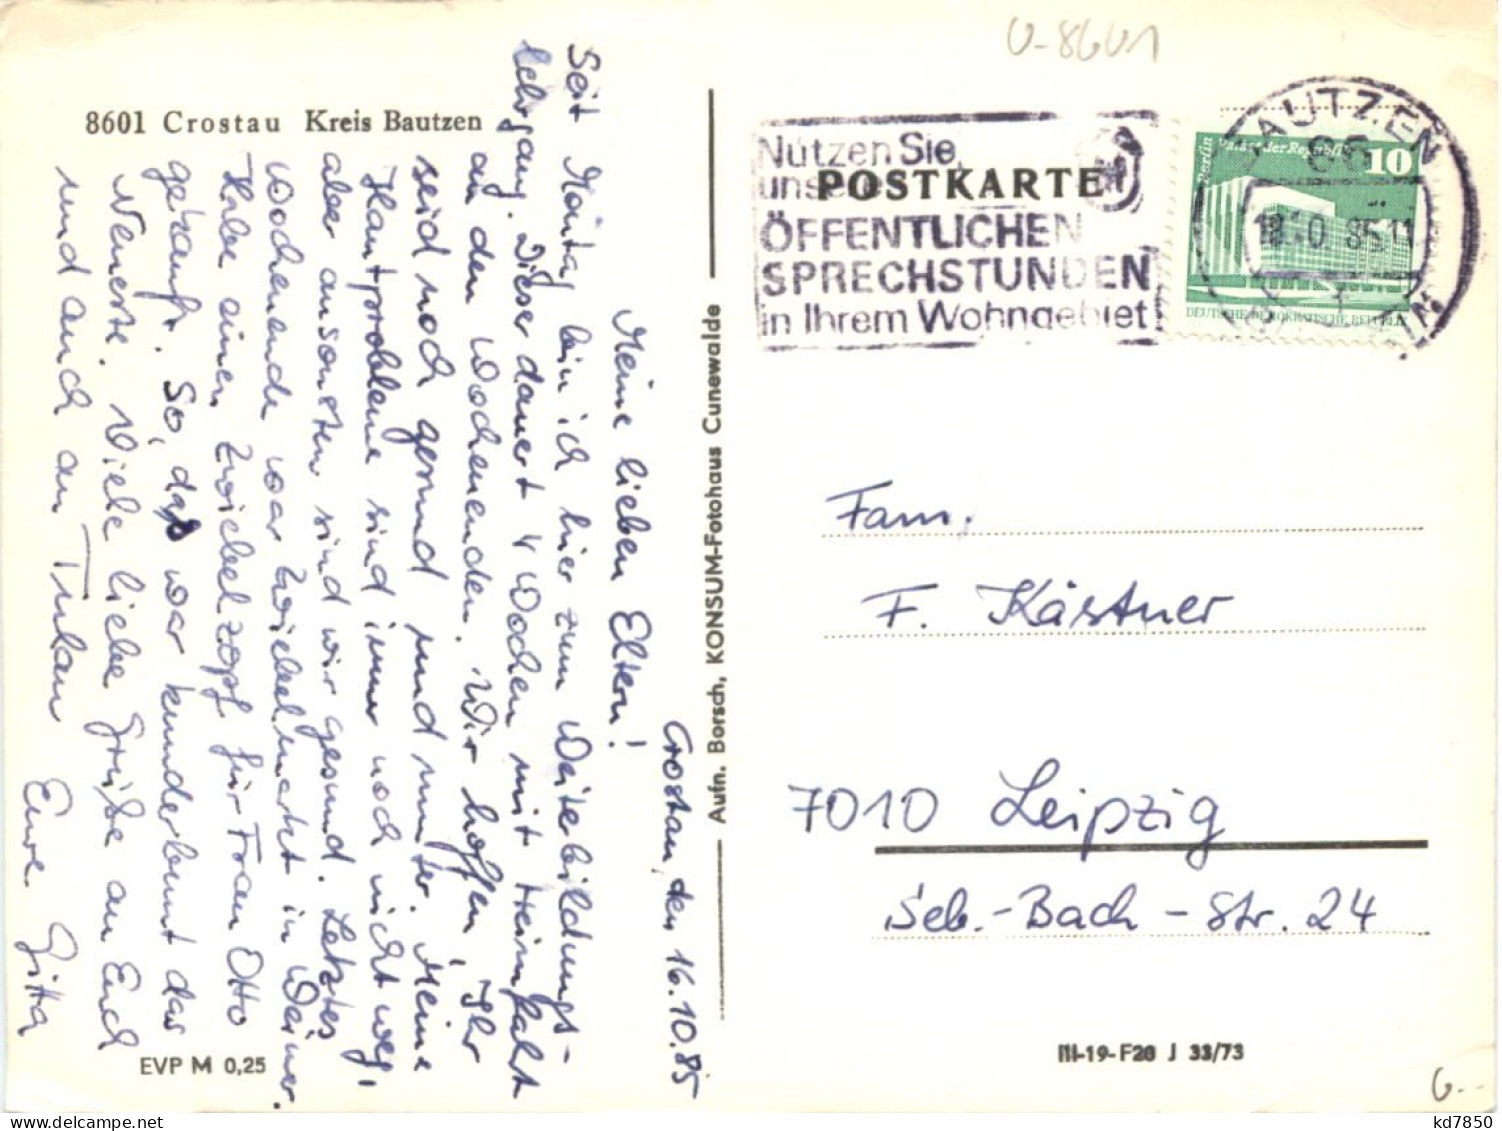 U-8601
8601 Crostau Kreis Bautzen
Crostau, den 16.10.85
Meine lieben Eltern!
Seit Montag bin ich hier zum Weiterbildungs-
lehrgang. Dieser dauert 4 Wochen mit Heimfahrt
an den Wochenenden. Wir hoffen, Ihr
seid noch gesund und munter. Meine
Hautprobleme sind immer noch nicht weg,
aber ansonsten sind wir gesund. Letztes
Wochenende war Zwiebelmarkt in Weimar.
Habe einen Zwiebelzopf für Frau Otto
gekauft. So, das war kunderbunt das
Neueste. Viele liebe Grüße an Euch
und auch an
Eure Gitta
EVP M 0,25
Aufn. Borsch, KONSUM-Fotohaus Cunewalde
Nutzen Sie
unsere
ÖFFENTLICHEN
SPRECHSTUNDEN
in Ihrem Wohngebiet
POSTKARTE
Berlin Palast der Republik 10
DEUTSCHE DEMOKRATISCHE REPUBLIK
BAUTZEN
85.11
Fam.
F. Kästner
7010 Leipzig
Seb.-Bach-Str. 24
III-19-F28 J 33/73
6.-
kd7850